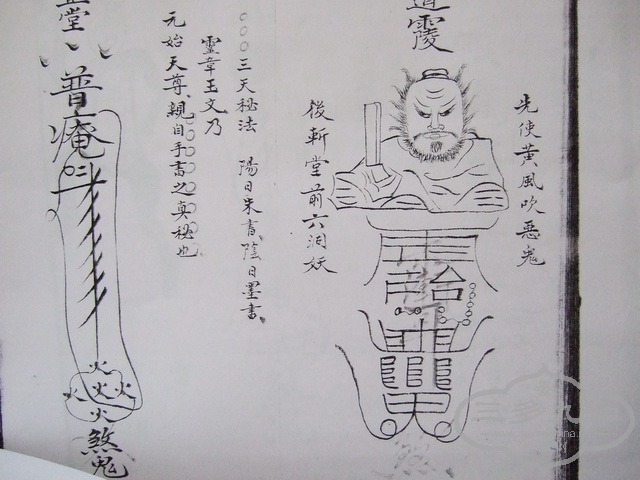 先使黄風吹恶鬼
道
後斬堂前六洞妖
○○○三天秘法 陽日朱書陰日墨書、
靈章玉文乃
元始天尊、親自手書之真秘也
堂
普庵
火
火火火
火
煞鬼